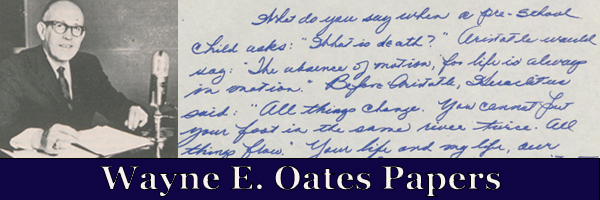 What do you say when a pre-school
child asks: "What is death?" Aristotle would
say: "The absence of motion, for life is always
in motion." Before Aristotle, Heraclitus
said: "All things change. You cannot put
your foot in the same river twice. All
things flow." Your life and my life, our
Wayne E. Oates Papers